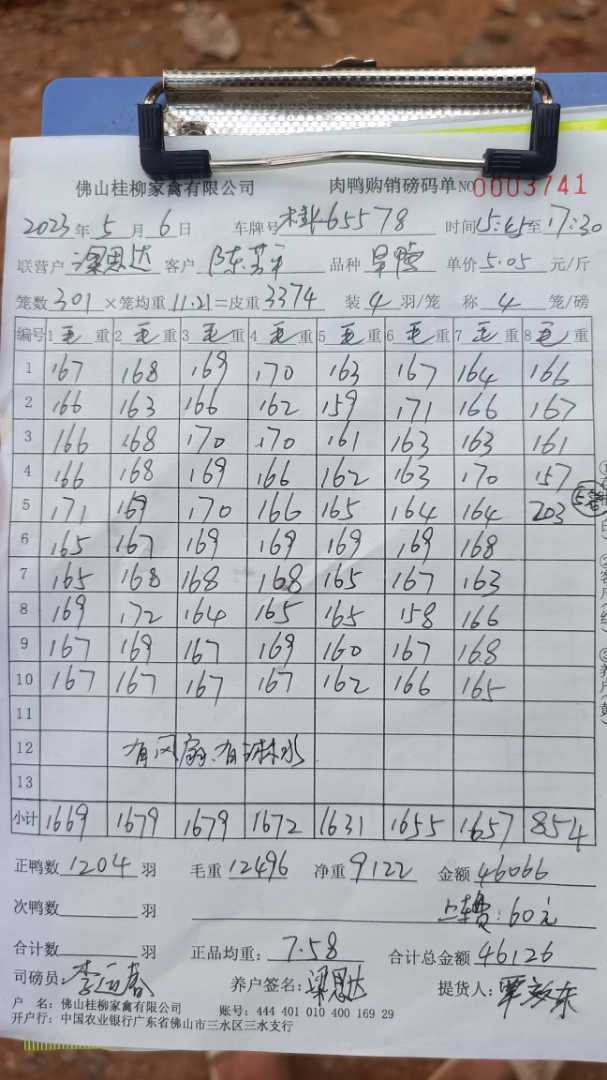 佛山桂柳家禽有限公司 肉鸭购销磅码单 NO 0003741
2023年5月6日 车牌号 65578 时间15:45至17:30
联营户 梁思达 客户 陈 品种 单价5.05元/斤
笼数301×笼均重11.21=皮重3374 装4羽/笼 称4笼/磅
编号 1毛重 2毛重 3毛重 4毛重 5毛重 6毛重 7毛重 8毛重
1 167 168 169 170 163 167 164 166
2 166 163 166 162 159 171 166 167
3 166 168 170 170 161 163 163 161
4 166 168 169 166 162 163 170 157
5 171 169 170 166 165 164 164 203 5笼
6 165 167 169 169 169 169 168
7 165 168 168 168 165 167 163
8 169 172 164 165 165 158 166
9 167 169 167 169 160 167 168
10 167 167 167 167 162 166 165
11
12 有风扇.有淋水
13
小计 1669 1679 1679 1672 1631 1655 1657 854
正鸭数1204羽 毛重12496 净重9122 金额46066
次鸭数 羽 上车费:60元
合计数 羽 正品均重:7.58 合计总金额46126
司磅员: 养户签名:梁思达 提货人:
户 名:佛山桂柳家禽有限公司 账号:444 401 010 400 169 29
开户行:中国农业银行广东省佛山市三水区三水支行